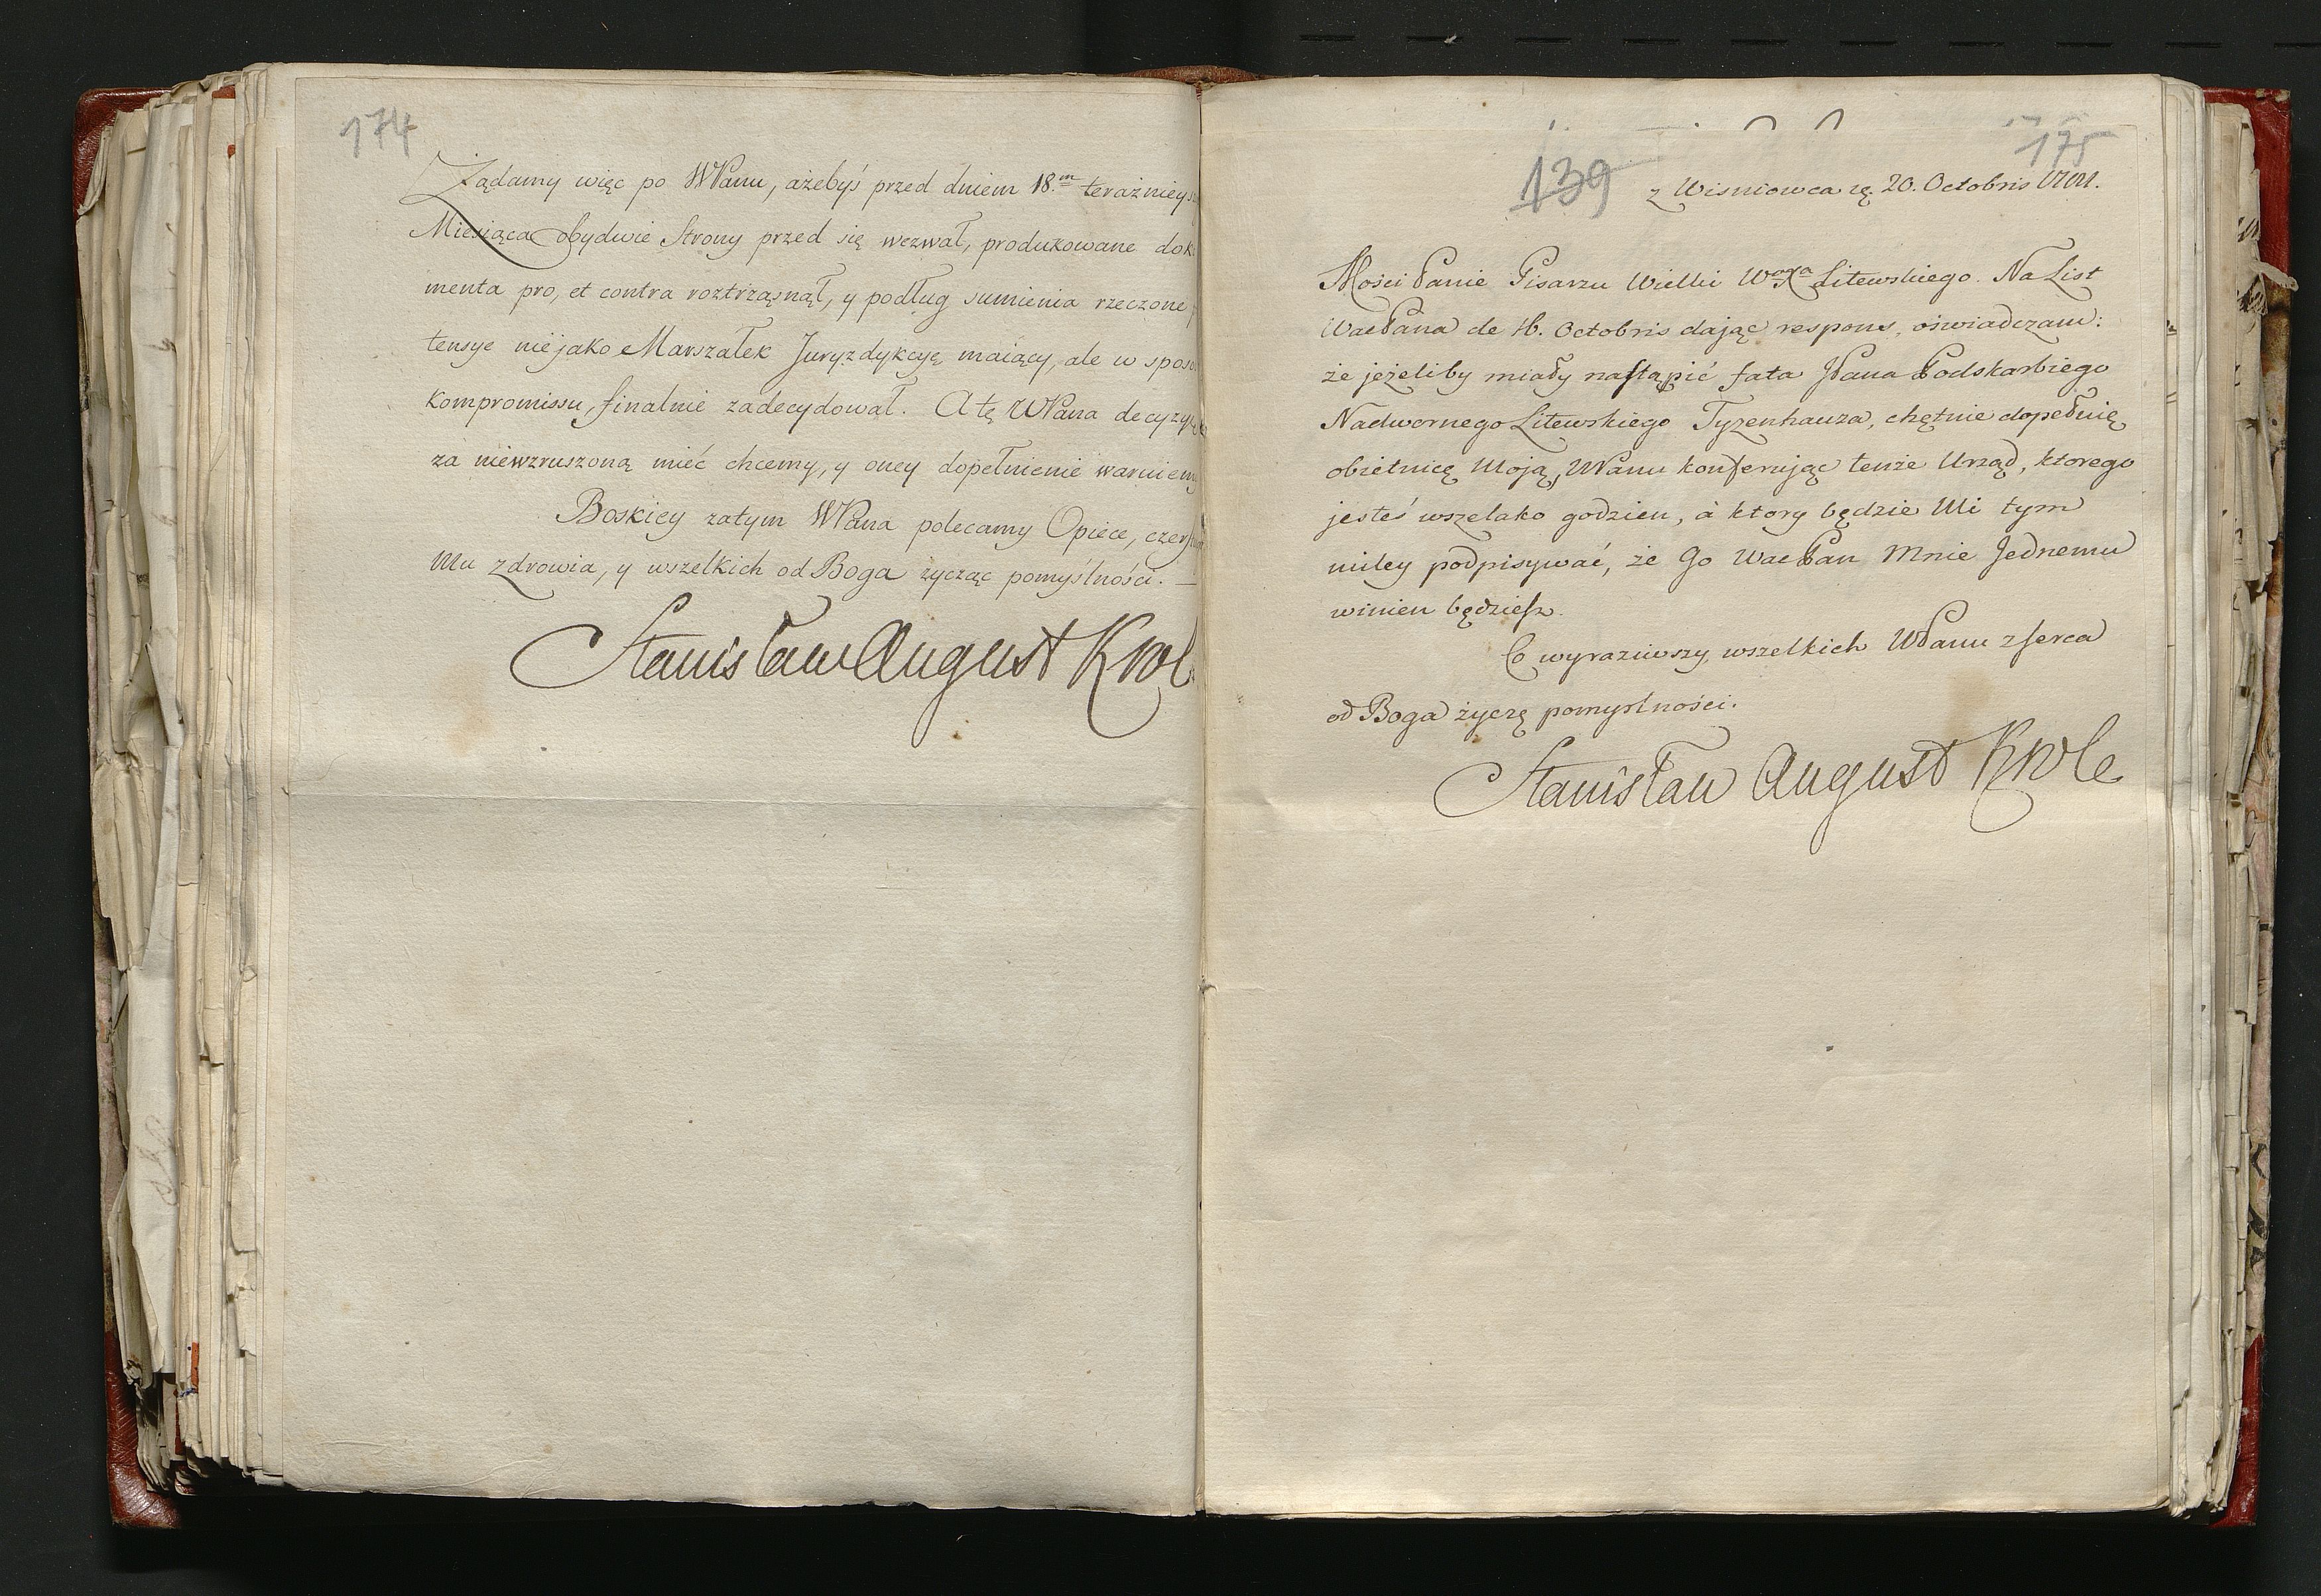 174
Żądamy więc po WPanu, ażebyś przed dniem 18.m teraźniey
Miesiąca obydwie Strony przed się wezwał, produkowane dok
menta pro, et contra roztrząsnął, y podług sumienia rzeczone
tensye nie jako Marszałek Juryzdykcyę maiący, ale w spos
kompromissu, finalnie zadecydował. A tę WPana decyzy
za niewzruszoną mieć chcemy, y oney dopełnienie waruiem
Boskiey zatym WPana polecamy Opiece, czer
Mu zdrowia, y wszelkich od Boga życząc pomyślności.
Stanisław August Krol
139
175
z Wisniowca 20. Octobris
Mości Panie Pisarzu Wielki W Litewskiego. Na List
WaćPana de Octobris dając respons, oświadczam:
że jeżeliby miały nastąpić fata JPana Podskarbiego
Nadwornego Litewskiego Tyzenhauza, chętnie dopełnię
obietnicę Moją, WPanu konferując tenże Urząd, ktorego
jesteś wszelako godzien, à ktory będzie Mi tym
miley podpisywać, że Go WaćPan Mnie Jednemu
winien będziesz.
Co wyraziwszy, wszelkich WPanu z serca
od Boga życzę pomyslności.
Stanisław August Krol